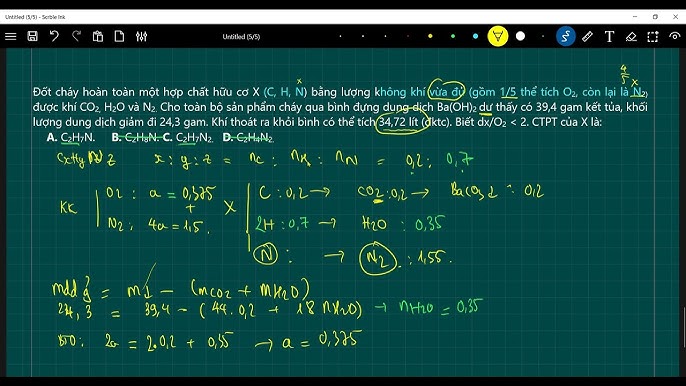 Untitled (5/5) - Scrble Ink
Untitled (5/5)
4/5 x
x
Đốt cháy hoàn toàn một hợp chất hữu cơ X (C, H, N) bằng lượng không khí vừa đủ (gồm 1/5 thể tích O2, còn lại là N2)
được khí CO2, H2O và N2. Cho toàn bộ sản phẩm cháy qua bình đựng dung dịch Ba(OH)2 dư thấy có 39,4 gam kết tủa, khối
lượng dung dịch giảm đi 24,3 gam. Khí thoát ra khỏi bình có thể tích 34,72 lít (đktc). Biết dx/O2 < 2. CTPT của X là:
A. C2H7N. B. C2H8N. C. C2H7N2. D. C2H4N2.
CxHyNz x : y : z = nC : nH : nN = 0,2 : 0,7
KK O2 : a = 0,375 X C : 0,2 → CO2 : 0,2 → BaCO3↓ : 0,2
+
N2 : 4a = 1,5. 2H : 0,7 → H2O : 0,35
N : → N2 : 1,55.
mdd g = m↓ - (mCO2 + mH2O)
24,3 = 39,4 - (44.0,2 + 18 nH2O) → nH2O = 0,35
BTO: 2a = 2.0,2 + 0,35 → a = 0,375